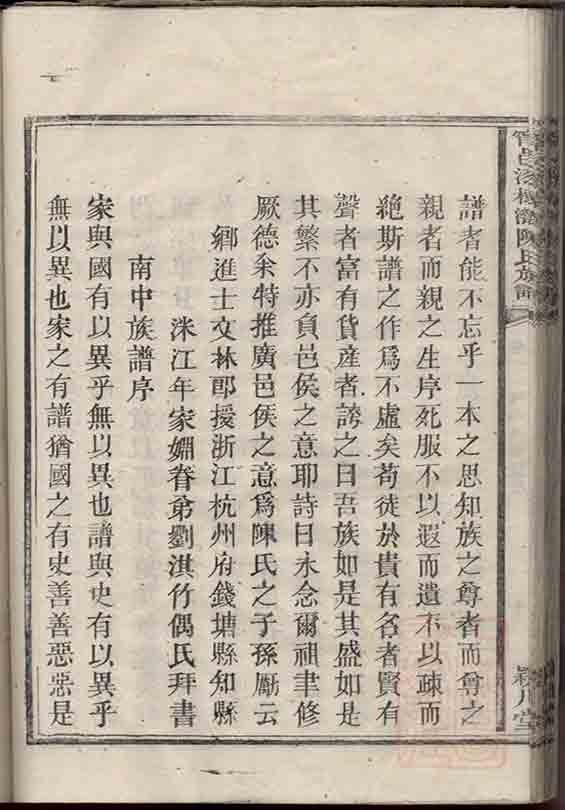 譜者能不忘乎一本之思知族之尊者而尊之
親者而親之生序死服不以遐而遺不以疎而
絶斯譜之作爲不虛矣苟徒於貴有名者賢有
聲者富有貨産者誇之曰吾族如是其盛如是
其繁不亦負邑侯之意耶詩曰永念爾祖聿修
厥德余特推廣邑侯之意爲陳氏之子孫勵云
鄉進士文林郎授浙江杭州府錢塘縣知縣
洣江年家姻眷弟劉淇竹偶氏拜書
南中族譜序
家與國有以異乎無以異也譜與史有以異乎
無以異也家之有譜猶國之有史善善惡惡是
陳氏族譜
潁川堂